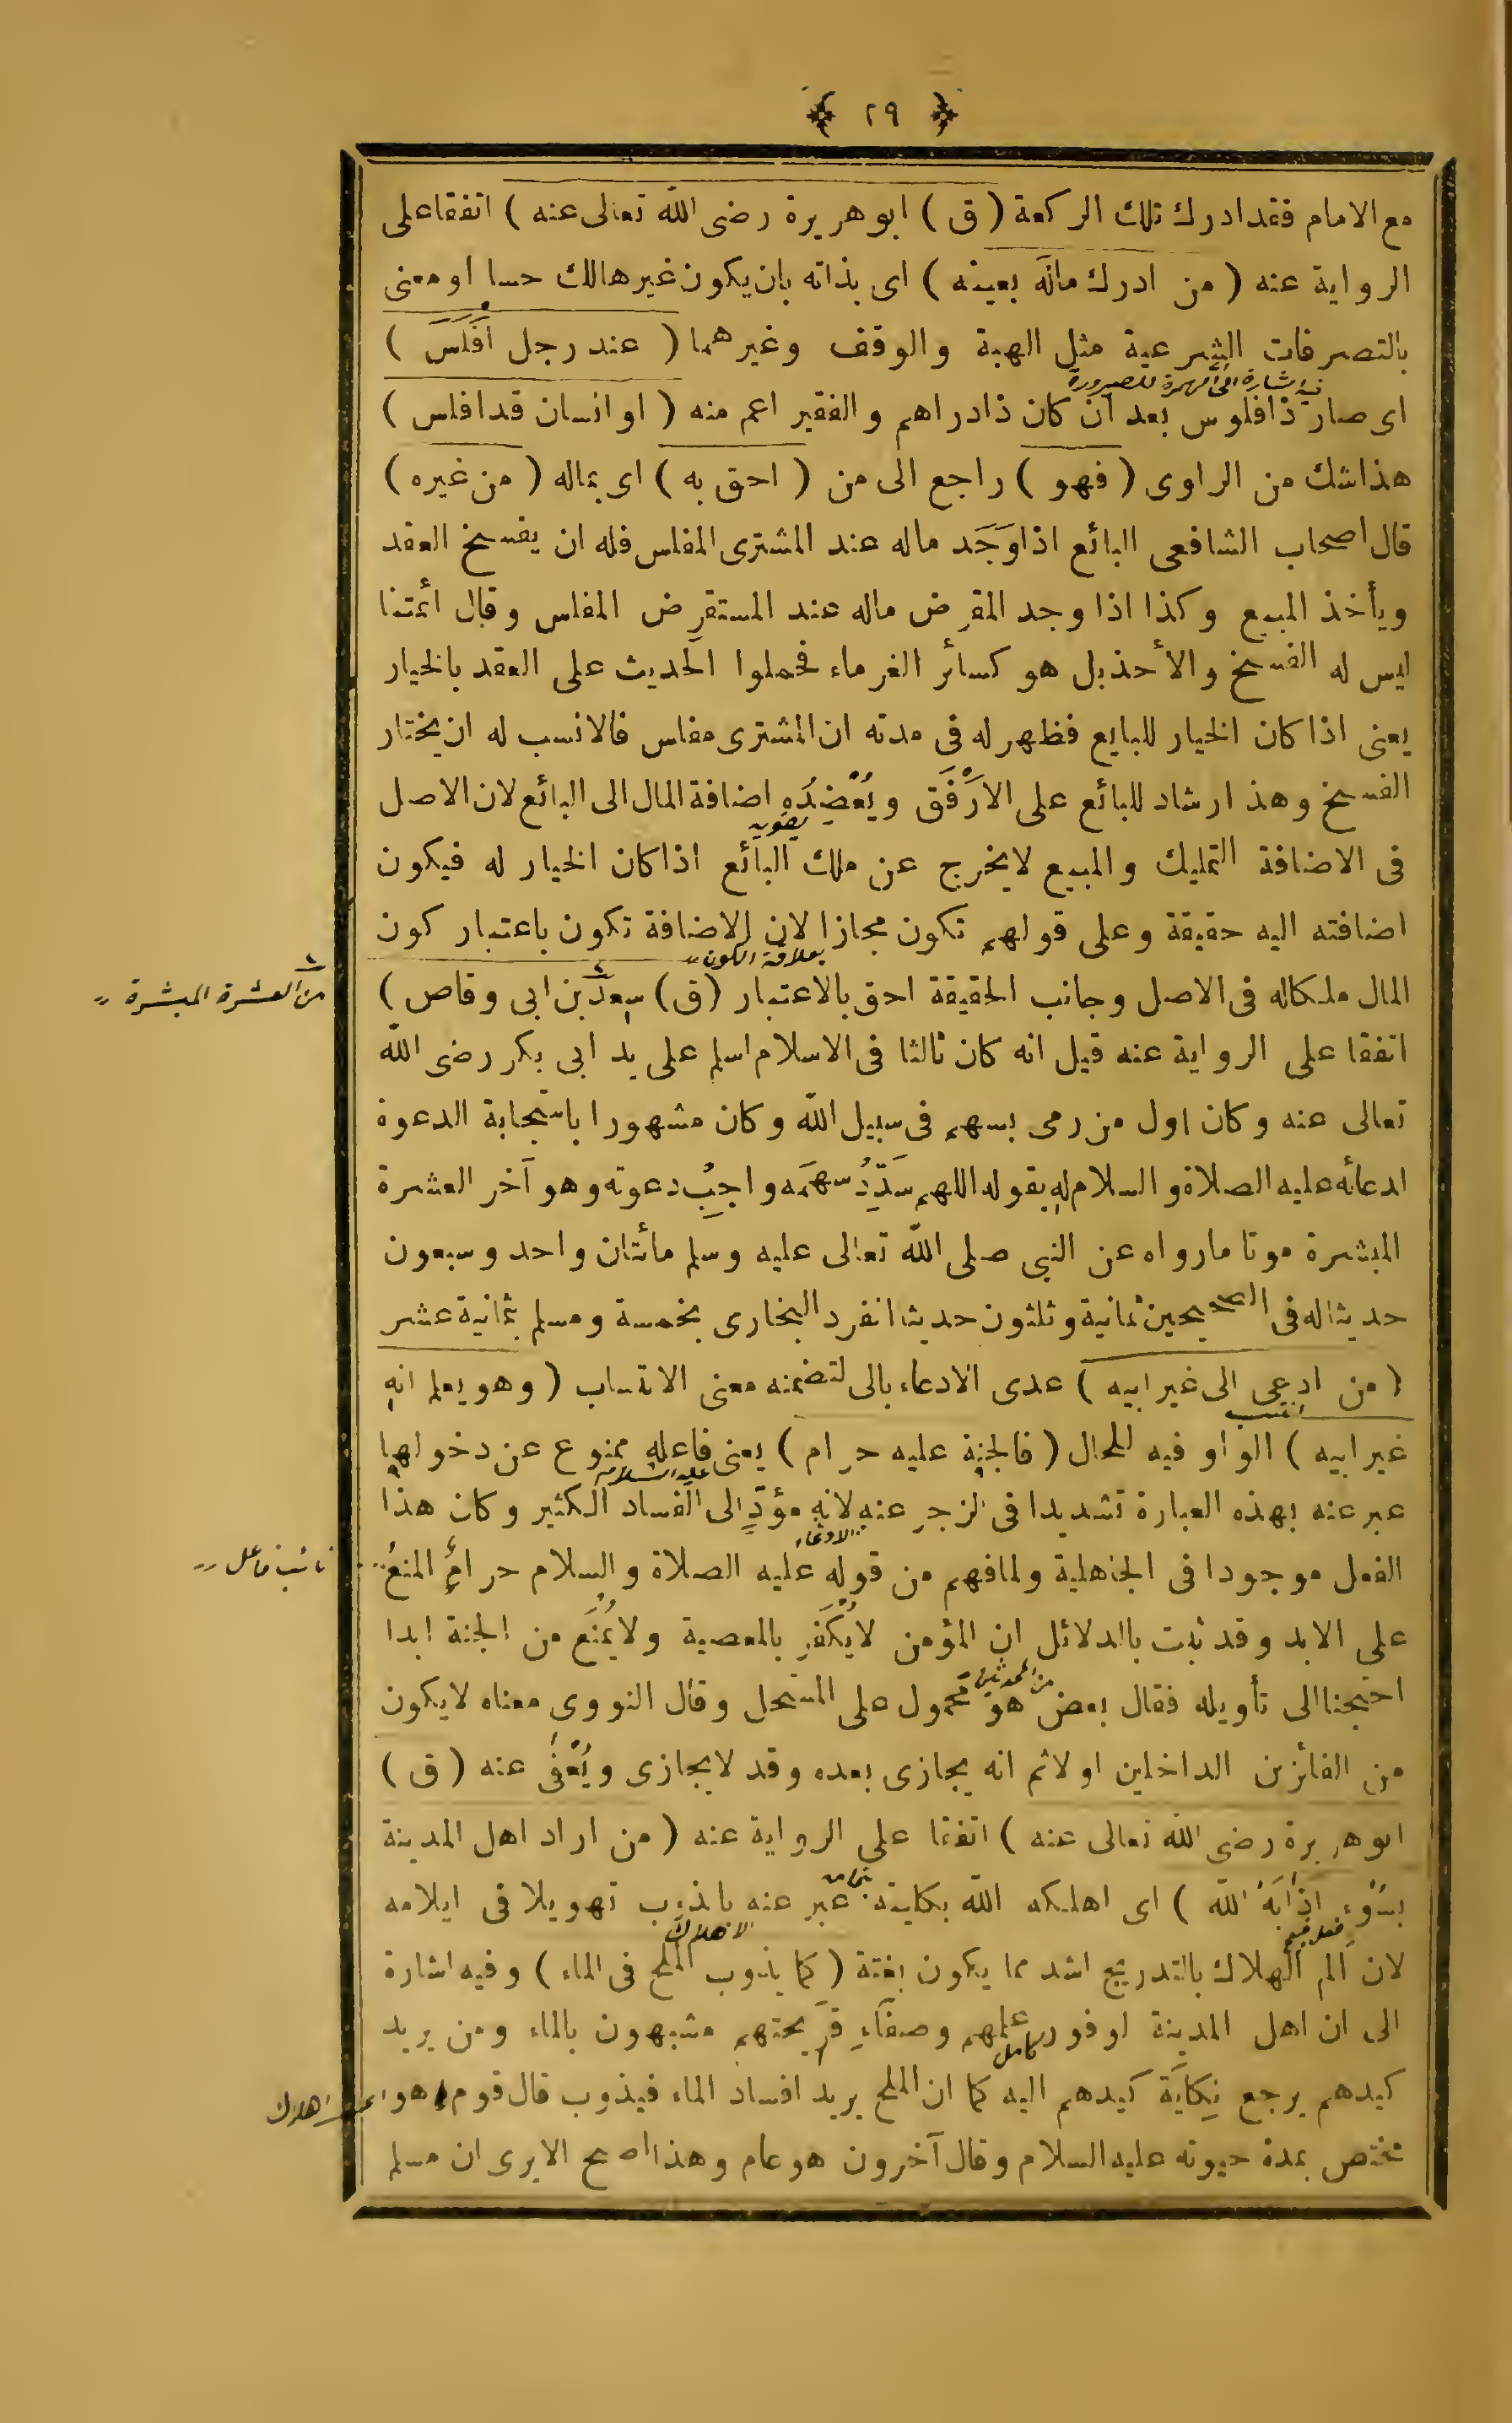 ﴿ ٢٩ ﴾
مع الامام فقد ادرك تلك الركعة ( ق ) ابو هريرة رضى الله تعالى عنه ) اتفقا على
الرواية عنه ( من ادرك ماله بعينه ) اى بذاته بان يكون غير هالك حسا او معنى
بالتصرفات الشرعية مثل الهبة والوقف وغيرهما ( عند رجل اَفْلَسَ )
فيه اشارة الى ان الهمزة للصيرورة
اى صار ذا فلوس بعد ان كان ذا دراهم والفقير اعم منه ( او انسان قد افلس )
هذا شك من الراوى ( فهو ) راجع الى من ( احق به ) اى بماله ( من غيره )
قال اصحاب الشافعى البائع اذا وَجَدَ ماله عند المشترى المفلس فله ان يفسخ العقد
ويأخذ المبيع وكذا اذا وجد المقرض ماله عند المستقرض المفلس وقال ائمتنا
ليس له الفسخ والأخذ بل هو كسائر الغرماء فحملوا الحديث على العقد بالخيار
يعنى اذا كان الخيار للبايع فظهر له فى مدته ان المشترى مفلس فالانسب له ان يختار
الفسخ وهذا ارشاد للبائع على الاَرْفَق ويُعْضِدُه اضافة المال الى البائع لان الاصل
يقويه
فى الاضافة التمليك والمبيع لا يخرج عن ملك البائع اذا كان الخيار له فيكون
اضافته اليه حقيقة وعلى قولهم تكون مجازا لان الاضافة تكون باعتبار كون
بعلاقة الكون
المال ملكا له فى الاصل وجانب الحقيقة احق بالاعتبار ( ق ) سعد بن ابى وقاص )
من العشرة المبشرة
اتفقا على الرواية عنه قيل انه كان ثالثا فى الاسلام اسلم على يد ابى بكر رضى الله
تعالى عنه وكان اول من رمى بسهم فى سبيل الله وكان مشهورا باستجابة الدعوة
لدعائه عليه الصلاة والسلام له بقوله اللهم سَدِّدْ سهمَه واجِبْ دعوته وهو آخر العشرة
المبشرة موتا ما رواه عن النبى صلى الله تعالى عليه وسلم مائتان واحد وسبعون
حديثا له فى الصحيحين ثمانية وثلثون حديثا انفرد البخارى بخمسة ومسلم بثمانية عشر
( من ادعى الى غير ابيه ) عدى الادعاء بالى لتضمنه معنى الانتساب ( وهو يعلم انه
انتسب
غير ابيه ) الواو فيه للحال ( فالجنة عليه حرام ) يعنى فاعله ممنوع عن دخولها
عليه السلام
عبر عنه بهذه العبارة تشديدا فى الزجر عنه لانه مؤدّ الى الفساد الكثير وكان هذا
الادعاء
الفعل موجودا فى الجاهلية ولما فهم من قوله عليه الصلاة والسلام حرامٌ المنعُ
نائب فاعل
على الابد وقد ثبت بالدلائل ان المؤمن لا يُكَفَّر بالمعصية ولا يُمْنَع من الجنة ابدا
من المحدثين
احتجنا الى تأويله فقال بعض هو محمول على المستحل وقال النووى معناه لا يكون
من الفائزين الداخلين اولا ثم انه يجازى بعده وقد لا يجازى ويُعْفَى عنه ( ق )
ابو هريرة رضى الله تعالى عنه ) اتفقا على الرواية عنه ( من اراد اهل المدينة
بسُوْءٍ اَذَابَهُ الله ) اى اهلكه الله بكليته عبر عنه بالذوب تهويلا فى ايلامه
الاهلاك
لان اَلم الهلاك بالتدريج اشد مما يكون بغتة ( كما يذوب الملح فى الماء ) وفيه اشارة
الى ان اهل المدينة لوفور علمهم وصفاءِ قريحتهم مشبهون بالماء ومن يريد
كامل
كيدهم يرجع نِكايَة كيدهم اليه كما ان الملح يريد افساد الماء فيذوب قال قوم هو
اهلاك
مختص بمدة حيوته عليه السلام وقال آخرون هو عام وهذا اصح الا يرى ان مسلم